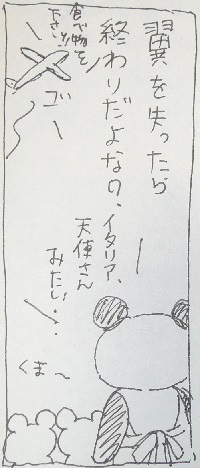 翼を失ったら
終わりだよなの、イタリア、
天使さん
みたい…
食べ物を
下さい!!
ゴー
くま〜